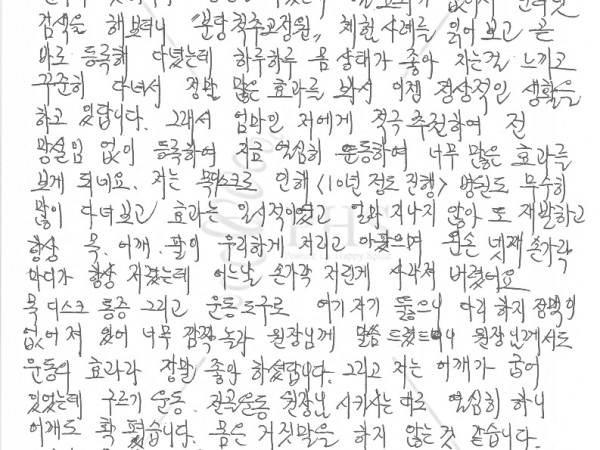 검색을 해보더니 "분당척추교정원" 체험사례를 읽어보고 곧
바로 등록해 다녔는데 하루하루 몸 상태가 좋아 지는걸 느끼고
꾸준히 다녀서 정말 많은 효과를 봐서 이젠 정상적인 생활을
하고 있답니다. 그래서 엄마인 저에게 적극 추천하여 전
망설임 없이 등록하여 지금 열심히 운동하여 너무 많은 효과를
보게 되네요. 저는 목디스크로 인해 <10년 정도 진행> 병원도 무수히
많이 다녀보고 효과는 일시적이었고 얼마 지나지 않아 또 재발하고
항상 목. 어깨. 팔이 우리하게 저리고 아팠으며 왼손 넷째 손가락
마디가 항상 저렸는데 어느날 손가락 저린게 사라져 버렸어요
목 디스크 통증 그리고 운동도구로 여기저기 뚫으니 다리 하지정맥이
없어져 있어 너무 깜짝 놀라 원장님께 말씀 드렸드니 원장님께서도
운동의 효과라 정말 좋아 하셨답니다. 그리고 저는 어깨가 굽어
있었는데 구르기 운동. 전굴운동 원장님 시키시는대로 열심히 하니
어깨도 확 펴졌습니다. 몸은 거짓말을 하지 않는것 같습니다.